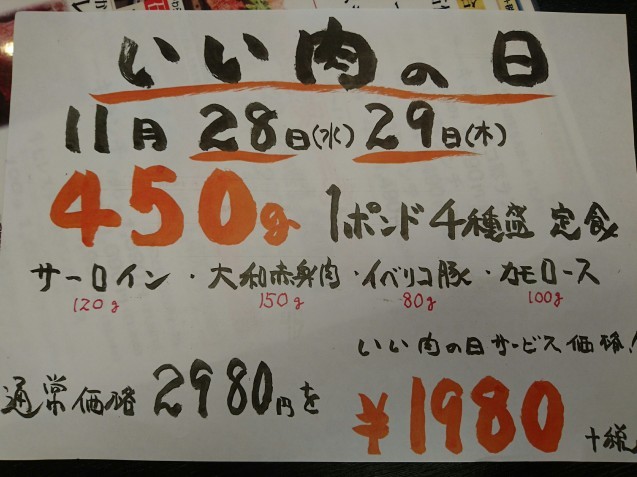 いい肉の日
11月28日(水)29日(木)
450g 1ポンド4種盛 定食
サーロイン・大和赤身肉・イベリコ豚・カモロース
120g 150g 80g 100g
いい肉の日サービス価格!
通常価格2980円を
¥1980+税